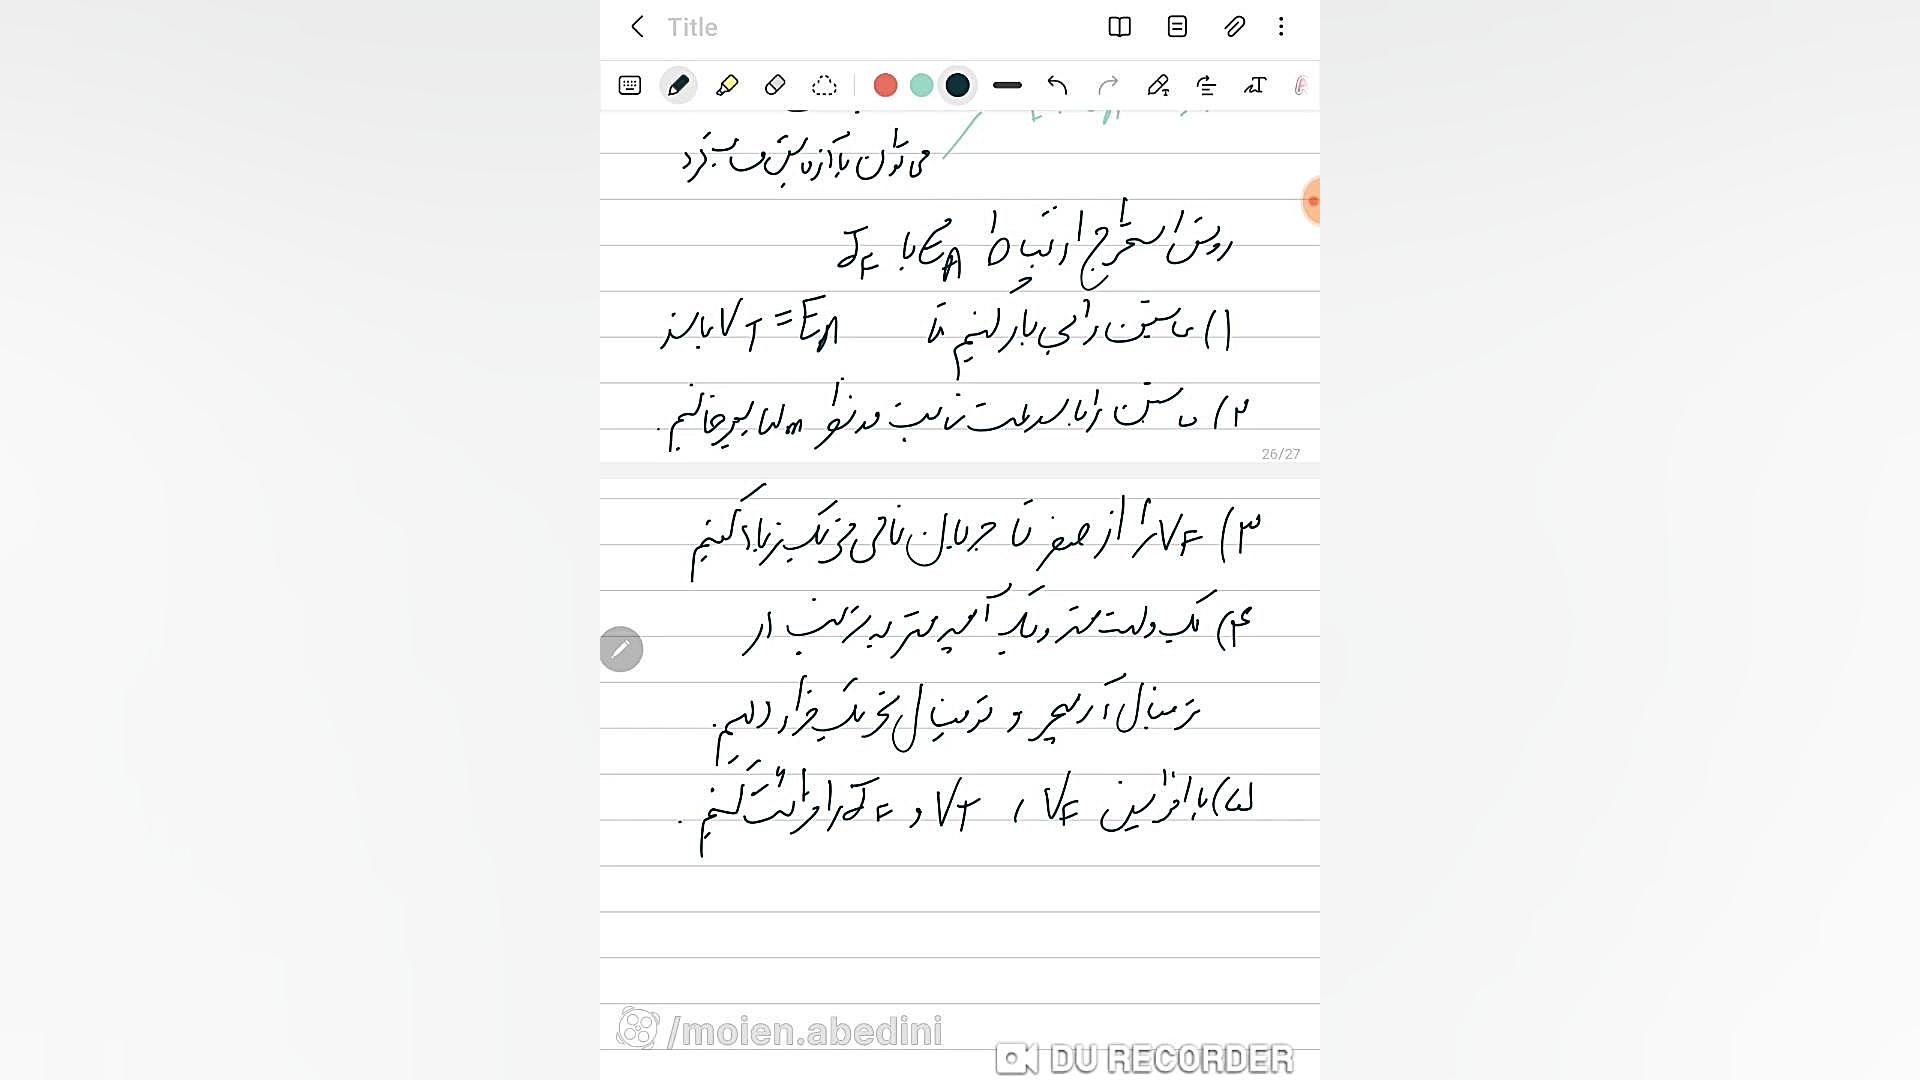 Title
می توان با آزمایش بدست آورد
روش استخراج ارتباط E_A با I_F
۱) ماشین را بی بار کنیم تا V_T = E_A باشد
۲) ماشین را با سرعت ثابت و دلخواه m بچرخانیم.
26/27
۳) V_F را از صفر تا جریان نامی تحریک زیاد کنیم
۴) یک ولت متر و یک آمپر متر به ترتیب در
ترمینال آرمیچر و ترمینال تحریک قرار دهیم.
۵) با افزایش V_F ، V_T و I_F را قرائت کنیم.
/moien.abedini
DU RECORDER